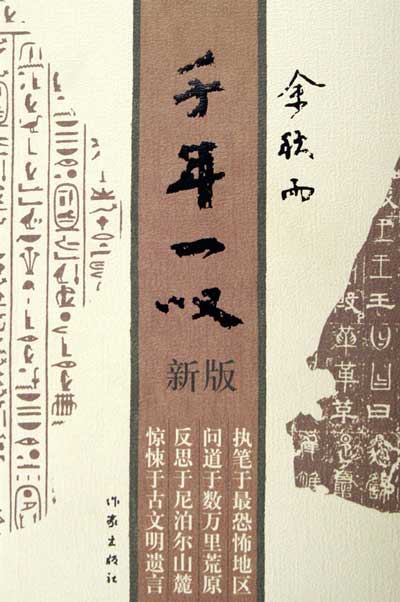 千年一叹
余秋雨
新版
执笔于最恐怖地区
问道于数万里荒原
反思于尼泊尔山麓
惊悚于古文明遗言
作家出版社